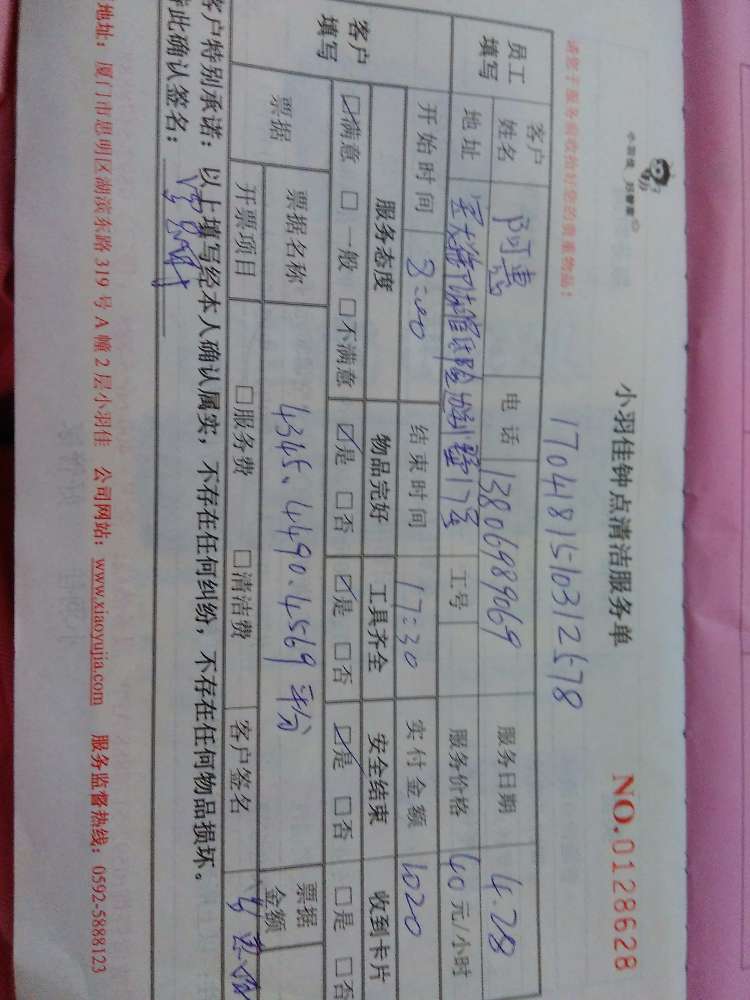 小羽佳 好管家
小羽佳钟点清洁服务单 NO.0128628
请您于服务前收拾好您的贵重物品！
1704181510312578
员工填写 客户姓名 阿惠 电话 13806989069 服务日期 4.28
地址 17号 工号 服务价格 40元/小时
开始时间 8:00 结束时间 17:30 实付金额 1020
客户填写 服务态度 物品完好 工具齐全 安全结束 收到卡片
☑满意 □一般 □不满意 ☑是 □否 ☑是 □否 ☑是 □否 □是 □否
票据 票据名称 4345、4490、4569 平分 票据金额
开票项目 □服务费 □清洁费 客户签名
客户特别承诺：以上填写经本人确认属实，不存在任何纠纷，不存在任何物品损坏。
特此确认签名：
地址：厦门市思明区湖滨东路 319 号 A 幢 2 层小羽佳 公司网站：www.xiaoyujia.com 服务监督热线：0592-5888123